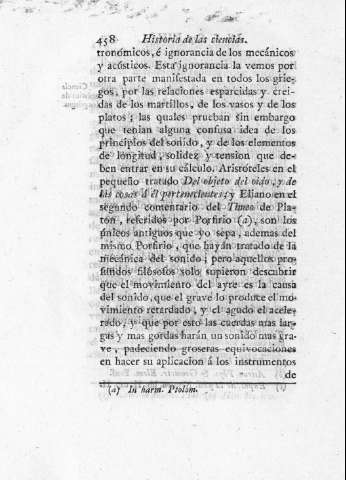 458 Historia de las ciencias.
tronómicos, é ignorancia de los mecánicos
y acústicos. Esta ignorancia la vemos por
otra parte manifestada en todos los grie-
gos, por las relaciones esparcidas y crei-
das de los martillos, de los vasos y de los
platos; las quales prueban sin embargo
que tenian alguna confusa idea de los
principios del sonido, y de los elementos
de longitud, solidez y tension que de-
ben entrar en su cálculo. Aristóteles en el
pequeño tratado Del objeto del oido, y de
las cosas á él pertenecientes; y Eliano en el
segundo comentario del Timeo de Pla-
ton, referidos por Porfirio (a), son los
únicos antiguos que yo sepa, ademas del
mismo Porfirio, que hayan tratado de la
mecánica del sonido; pero aquellos pro-
fundos filósofos solo supieron descubrir
que el movimiento del ayre es la causa
del sonido, que el grave lo produce el mo-
vimiento retardado, y el agudo el acele-
rado, y que por esto las cuerdas mas lar-
gas y mas gordas harán un sonido mas gra-
ve, padeciendo groseras equivocaciones
en hacer su aplicacion á los instrumentos
de
(a) In harm. Ptolom.